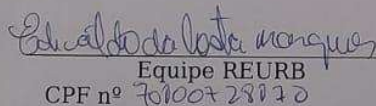 Edivaldo da Costa marques
Equipe REURB
CPF nº 70100728170